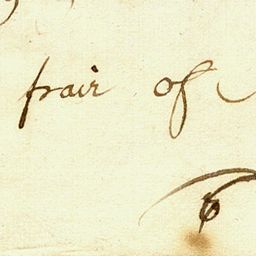 frair of